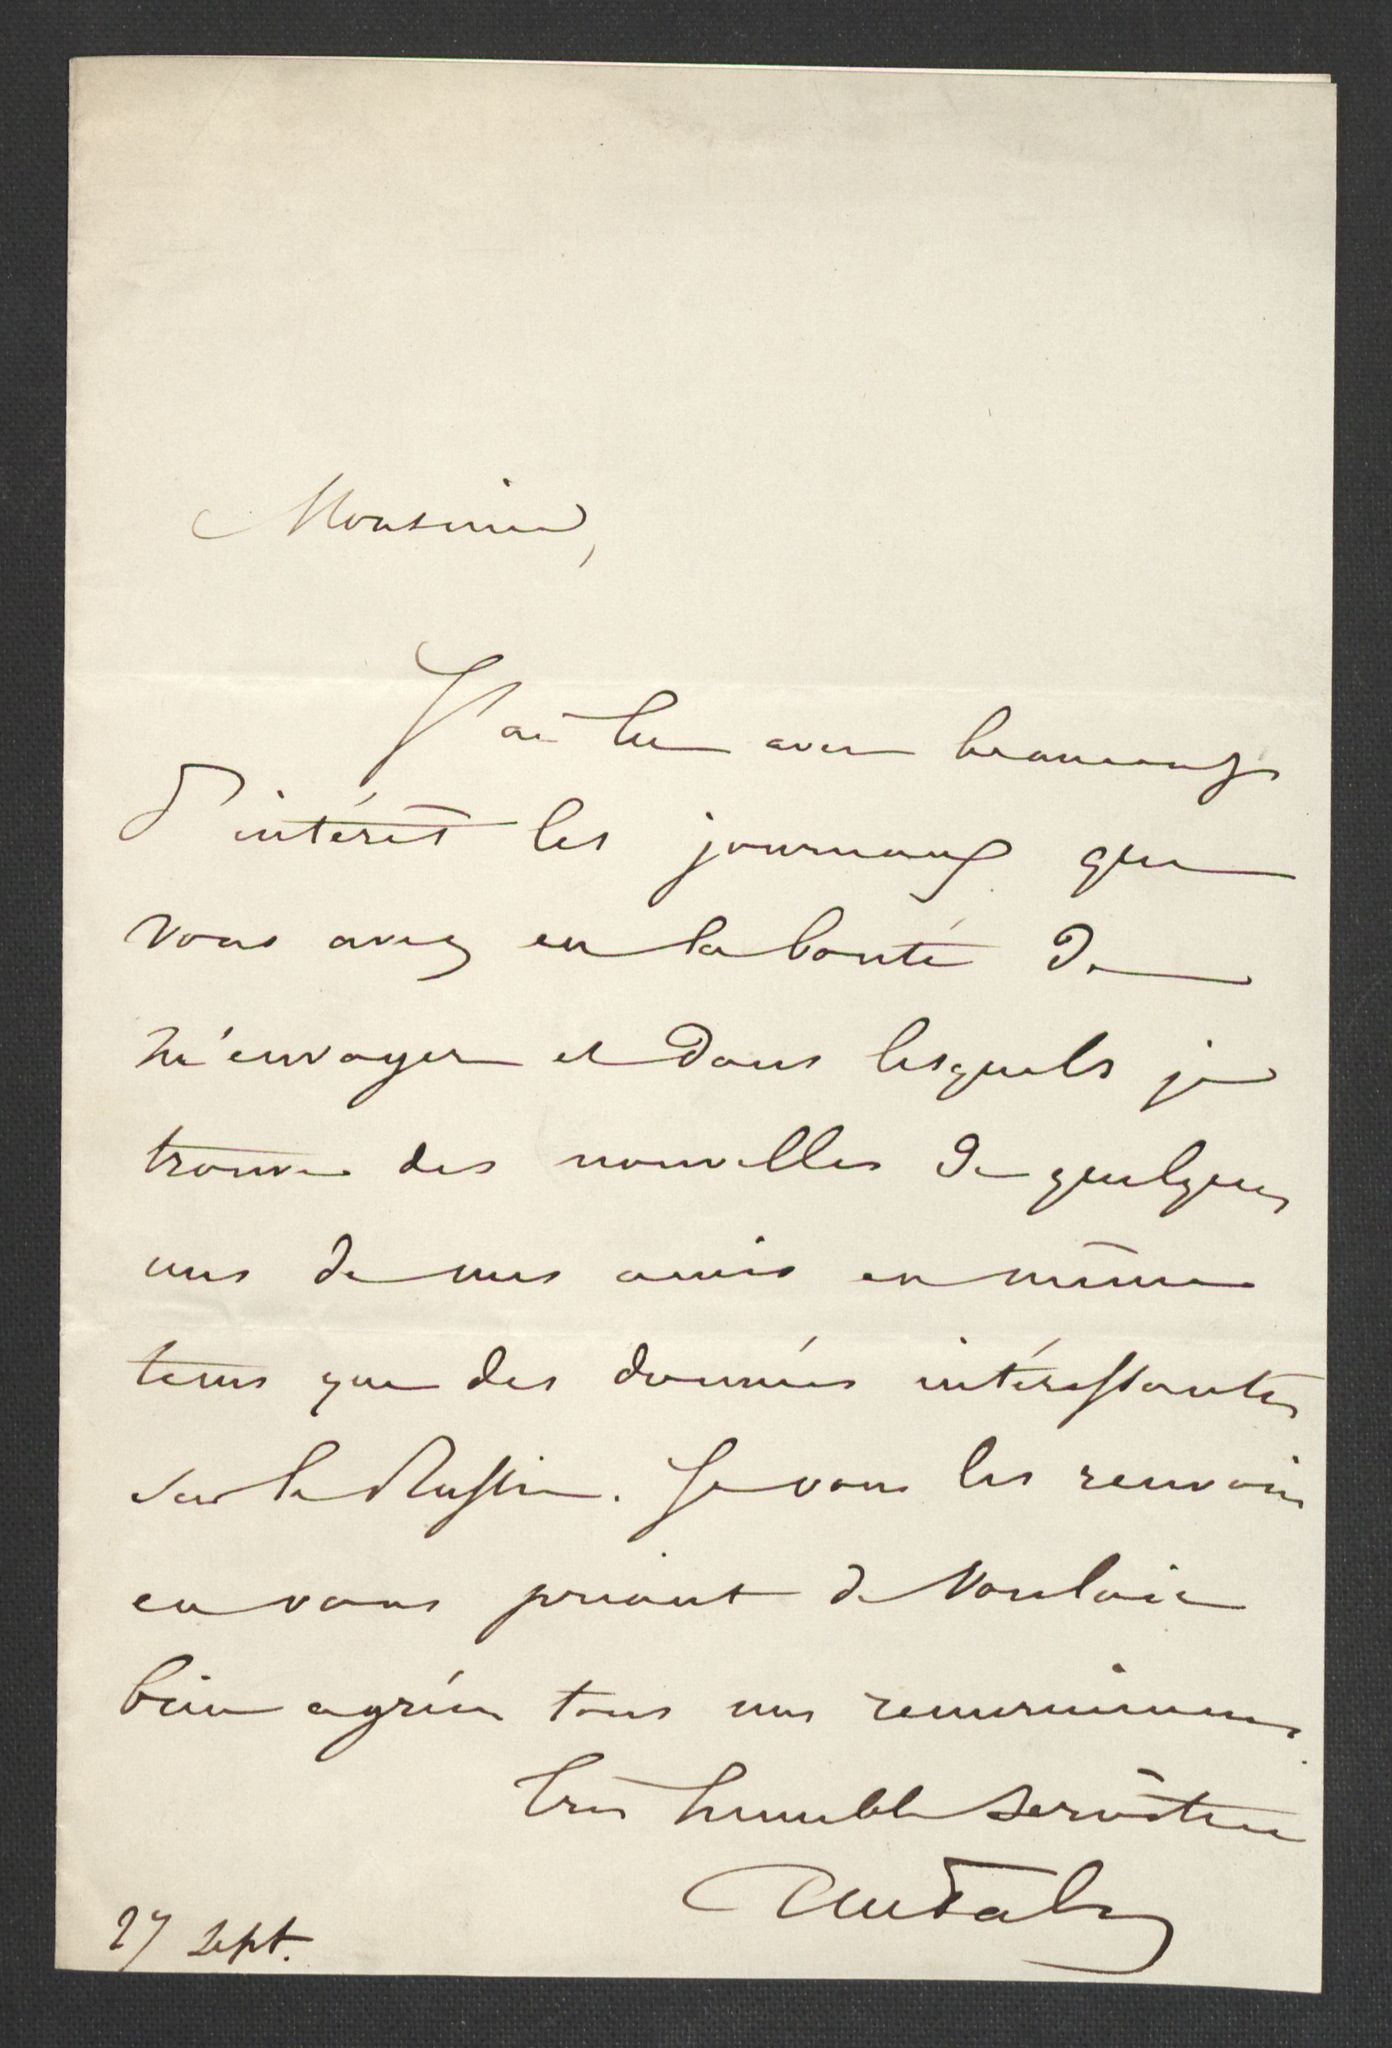 Monsieur,
J'ai lu avec beaucoup
d'intérêt les journaux que
vous avez eu la bonté de
m'envoyer et dans lesquels je
trouve des nouvelles de quelques
uns de mes amis en même
tems que des données intéressantes
sur la Russie. Je vous les renvoie
en vous priant de vouloir
bien agréer tous mes remerciemens.
Très humble serviteur
27 Sept.